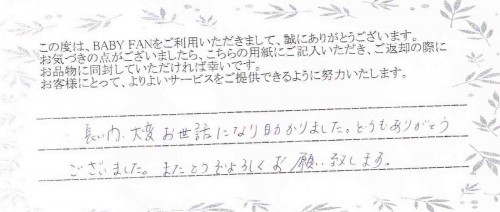 この度は、BABY FANをご利用いただきまして、誠にありがとうございます。
お気づきの点がございましたら、こちらの用紙にご記入いただき、ご返却の際に
お品物に同封していただければ幸いです。
お客様にとって、よりよいサービスをご提供できるように努力いたします。
長い内、大変お世話になり助かりました。どうもありがとう
ございました。またどうぞよろしくお願い致します。